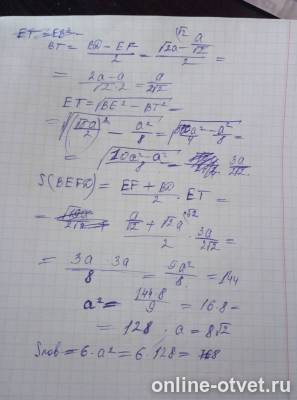 ET = EB²-
BT = (BD - EF)/2 = (√2a - a/√2)/2 =
= (2a - a)/(√2·2) = a/(2√2)
ET = √(BE² - BT²) =
= √((√5a/2)² - a²/8) = √(10a² - a²)/8
= √((10a² - a²)/8) = 3a/(2√2)
S(BEFD) = (EF + BD)/2 · ET =
= (a/√2 + √2a)/2 · 3a/(2√2) =
= 3a 3a/8 = 9a²/8 = 144
a² = 144·8/9 = 16·8 =
= 128 ; a = 8√2
Sпов = 6·a² = 6·128 = 768
online-otvet.ru